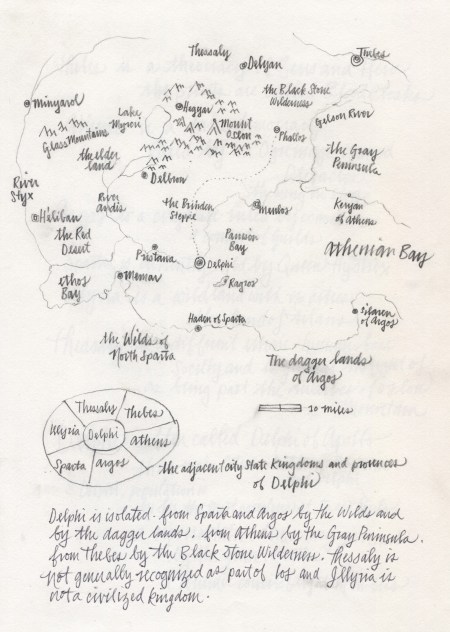 Thessaly
Delyan
Thebes
Minyarol
the Black Stone
Wilderness
Haggar
Lake
Mount
Galson River
Glass Mountains
Phallos
the elder
land
the Gray
Peninsula
Delbron
River
Styx
River
Menlos
Kenyan
of athens
Haliban
the Brinden
Steppe
the Red
Desert
Pansion
Bay
athenian Bay
Pristana
Delphi
ethos
Bay
Memnar
Ragros
Haden of Sparta
Silaren
of Argos
the Wilds of
North Sparta
The dagger lands
of Argos
10 miles
Thessaly
Thebes
Illyria
Delphi
athens
Sparta
argos
the adjacent city State Kingdoms and provences
of Delphi
Delphi is isolated. from Sparta and Argos by the Wilds and
by the dagger lands. from Athens by the Gray Peninsula.
from Thebes by the Black Stone Wilderness. Thessaly is
not generally recognized as part of Ios and Illyria is
not a civilized kingdom.